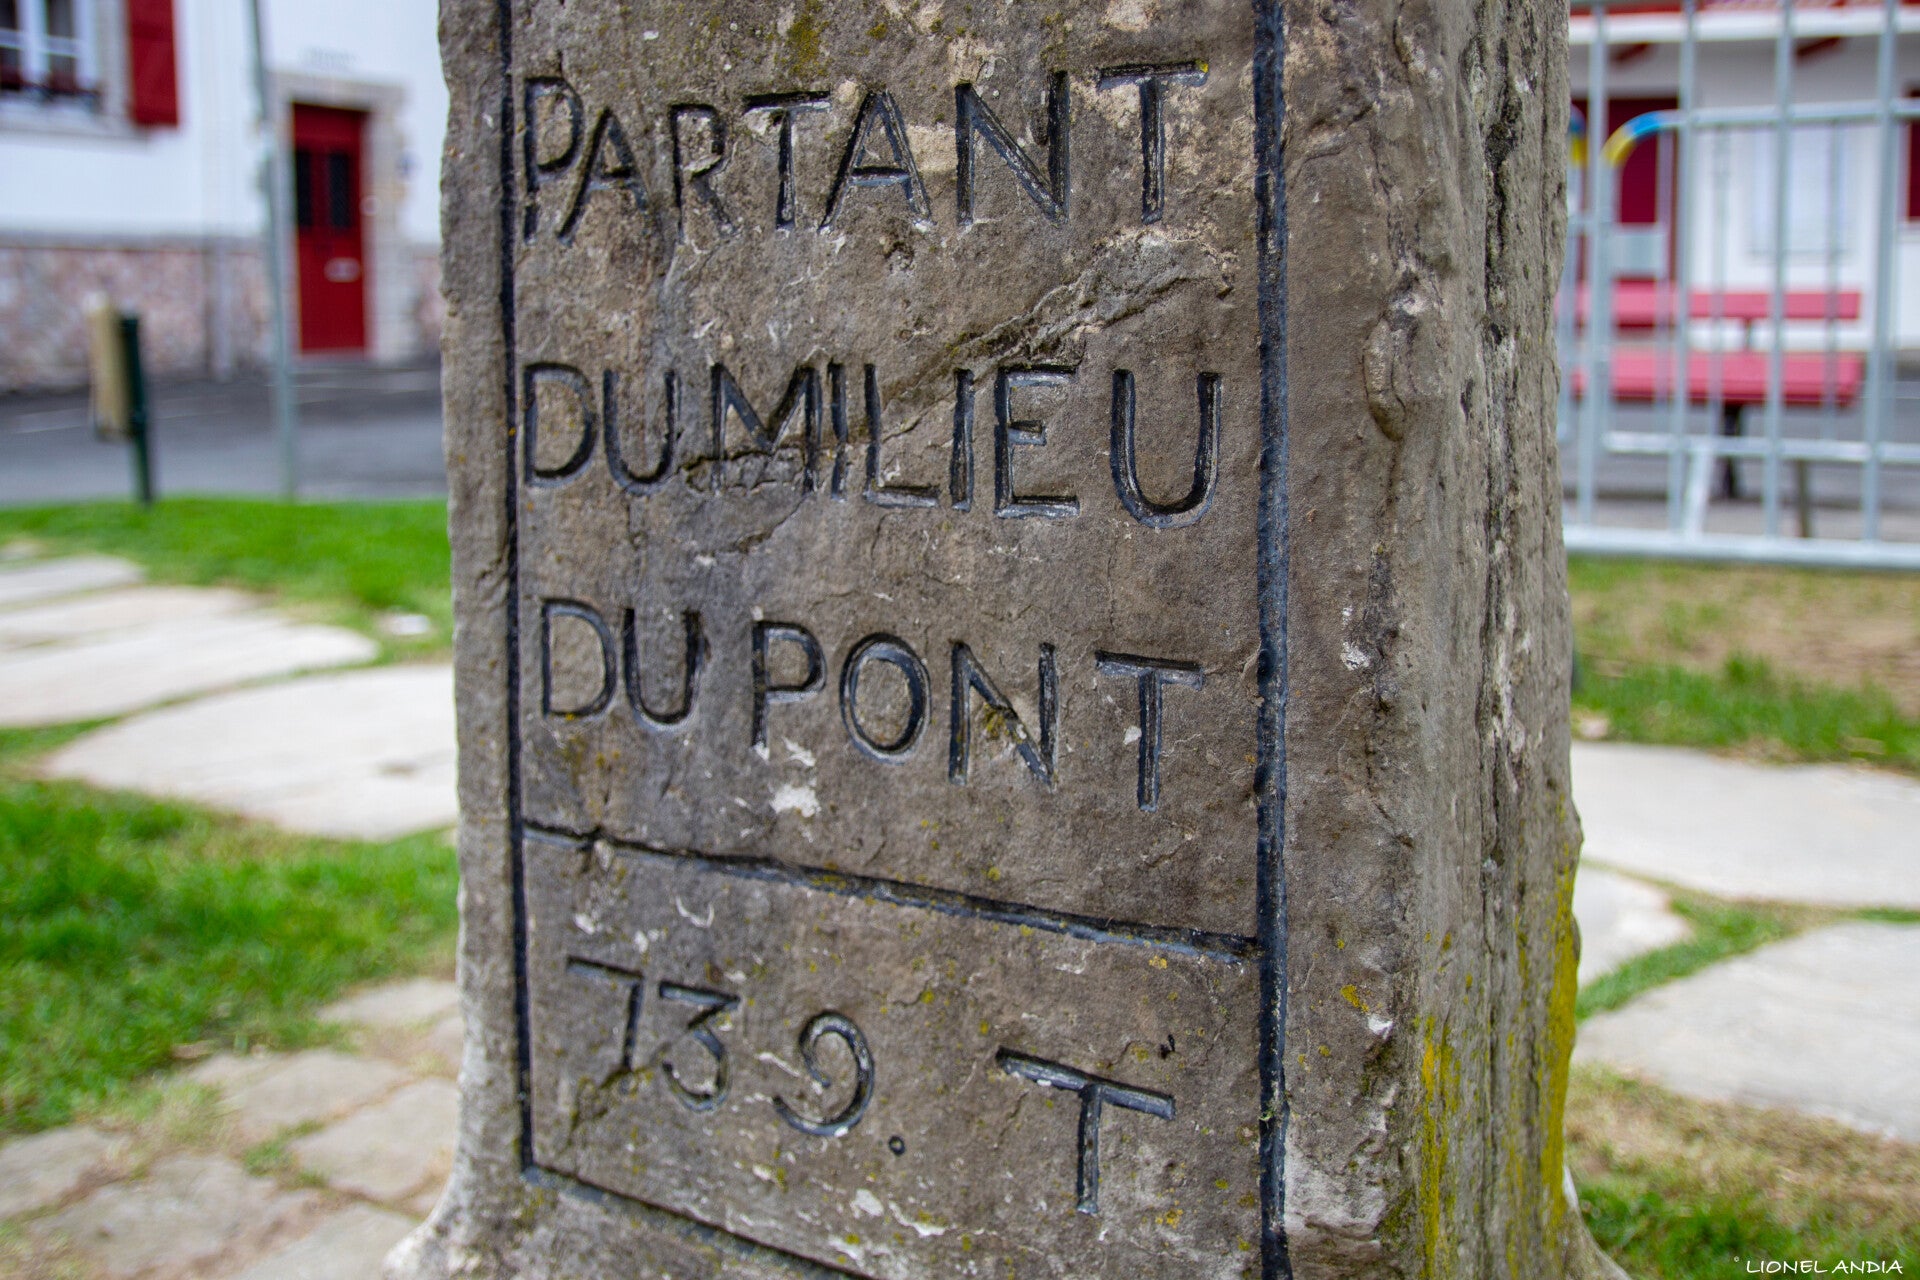 PARTANT
DU MILIEU
DU PONT
739. T
° LIONEL ANDIA